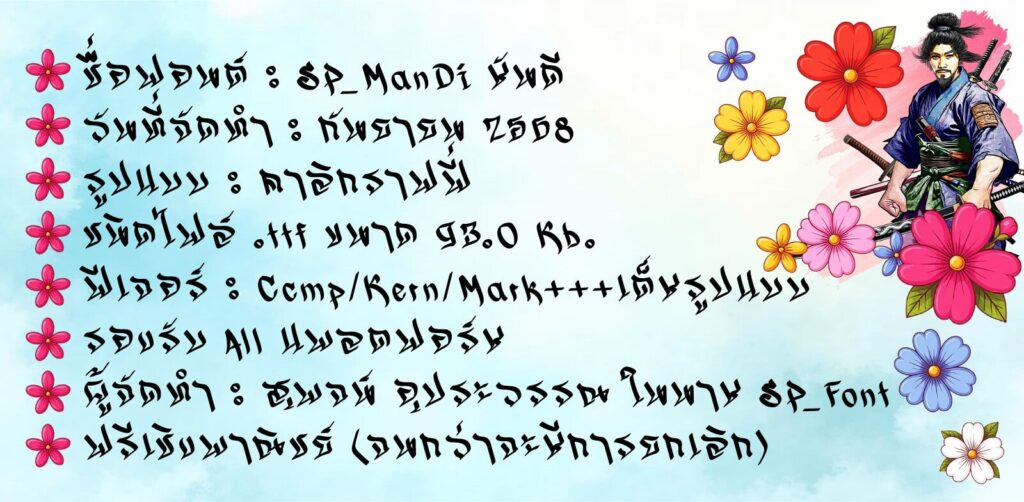 ชื่อฟอนต์ : SP_ManDi มันดี
วันที่จัดทำ : กันยายน 2568
รูปแบบ : คาลิกราฟฟี่
ชนิดไฟล์ .ttf ขนาด 93.0 Kb.
ฟีเจอร์ : Ccmp/Kern/Mark+++เต็มรูปแบบ
รองรับ All แพลตฟอร์ม
ผู้จัดทำ : สุพจน์ อุประวรรณ ในนาม SP_Font
ฟรีเชิงพาณิชย์ (จนกว่าจะมีการยกเลิก)